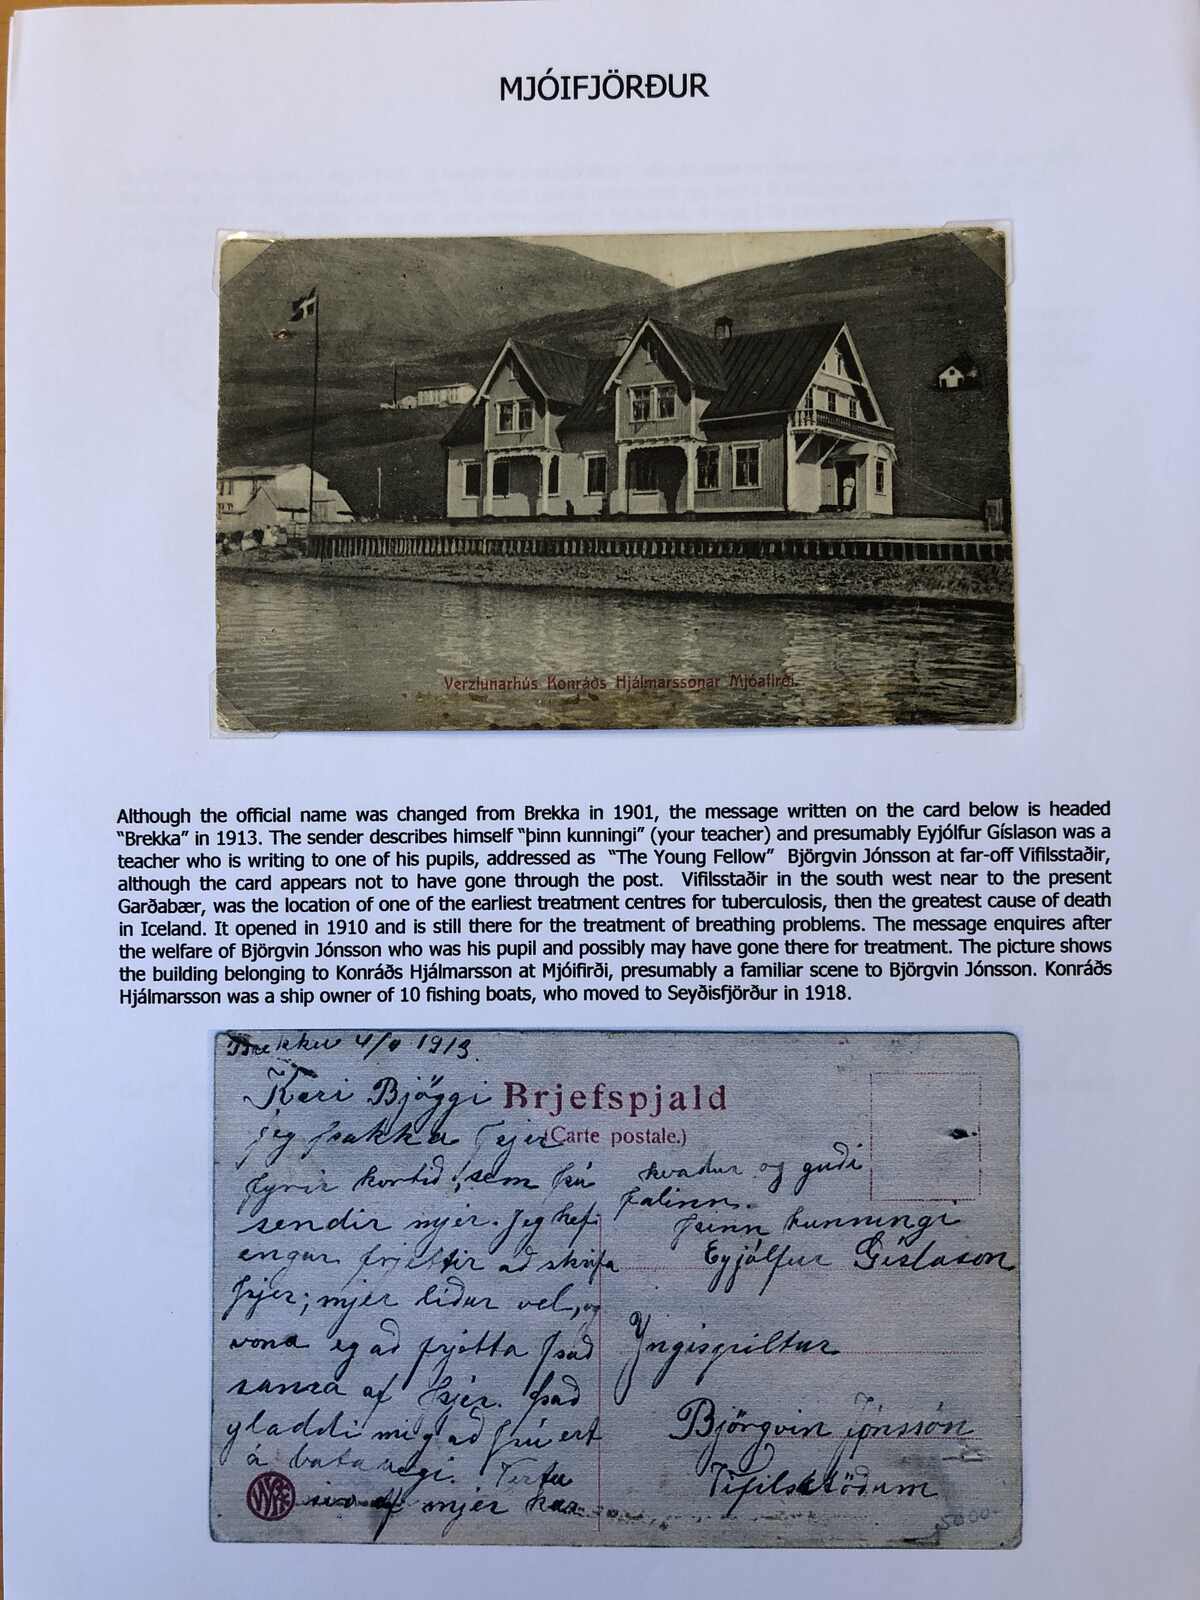 MJÓIFJÖRÐUR
Verzlunarhús Konráðs Hjálmarssonar Mjóafirði.
Although the official name was changed from Brekka in 1901, the message written on the card below is headed
“Brekka” in 1913. The sender describes himself “þinn kunningi” (your teacher) and presumably Eyjólfur Gíslason was a
teacher who is writing to one of his pupils, addressed as “The Young Fellow” Björgvin Jónsson at far-off Vifilsstaðir,
although the card appears not to have gone through the post. Vifilsstaðir in the south west near to the present
Garðabær, was the location of one of the earliest treatment centres for tuberculosis, then the greatest cause of death
in Iceland. It opened in 1910 and is still there for the treatment of breathing problems. The message enquires after
the welfare of Björgvin Jónsson who was his pupil and possibly may have gone there for treatment. The picture shows
the building belonging to Konráðs Hjálmarsson at Mjóifirði, presumably a familiar scene to Björgvin Jónsson. Konráðs
Hjálmarsson was a ship owner of 10 fishing boats, who moved to Seyðisfjörður in 1918.
Brekku 1913.
Kæri Björggi
Brjefspjald
(Carte postale.)
jeg þakka þjer
fyrir kortið, sem þú
sendir mjer. Jeg hefi
engar frjettir að skrifa
þjer; mjer líður vel, og
vona eg að frjetta það
sama af þjer. Það
gladdi mig að þú ert
á batavegi. Vertu
af mjer
kvadur og guði
falinn.
þinn kunningi
Eyjólfur Gíslason
Yngispiltur
Björgvin Jónsson
Vifilsstöðum
5000-